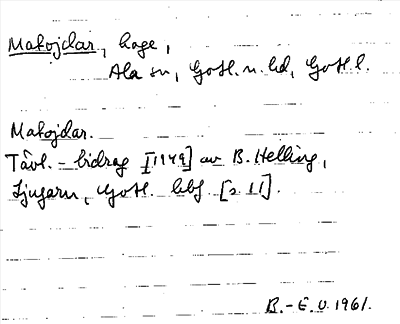 Makojdar, hage,
Ala sn, Gotl. n. hd, Gotl. l.
Makojdar.
Tävl. - bidrag [1949] av B. Helling,
Ljugarn, Gotl. hbf. [s 11].
B.-E. U. 1961.